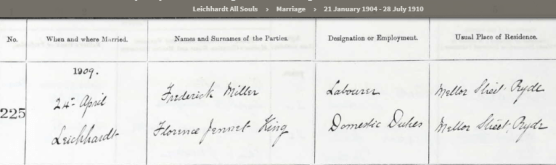 Leichhardt All Souls › Marriage › 21 January 1904 - 28 July 1910
No. When and where Married. Names and Surnames of the Parties. Designation or Employment. Usual Place of Residence.
1909.
225 24th April Frederick Miller Labourer Mellor Street Ryde
Leichhardt Florence Jennet King Domestic Duties Mellor Street, Ryde